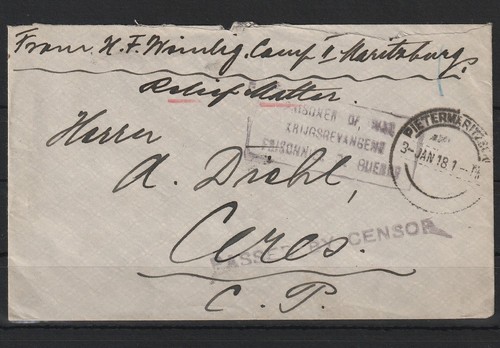 From H. F. Weinlig. Camp I Maritzburg.
Relief Matter.
PRISONER OF WAR
KRIJGSGEVANGENE
PRISONNIER GUERRE
PIETERMARITZBURG
3-JAN 18 1-
Herrn
A. Diehl,
Ceres.
PASSED BY CENSOR
C. P.